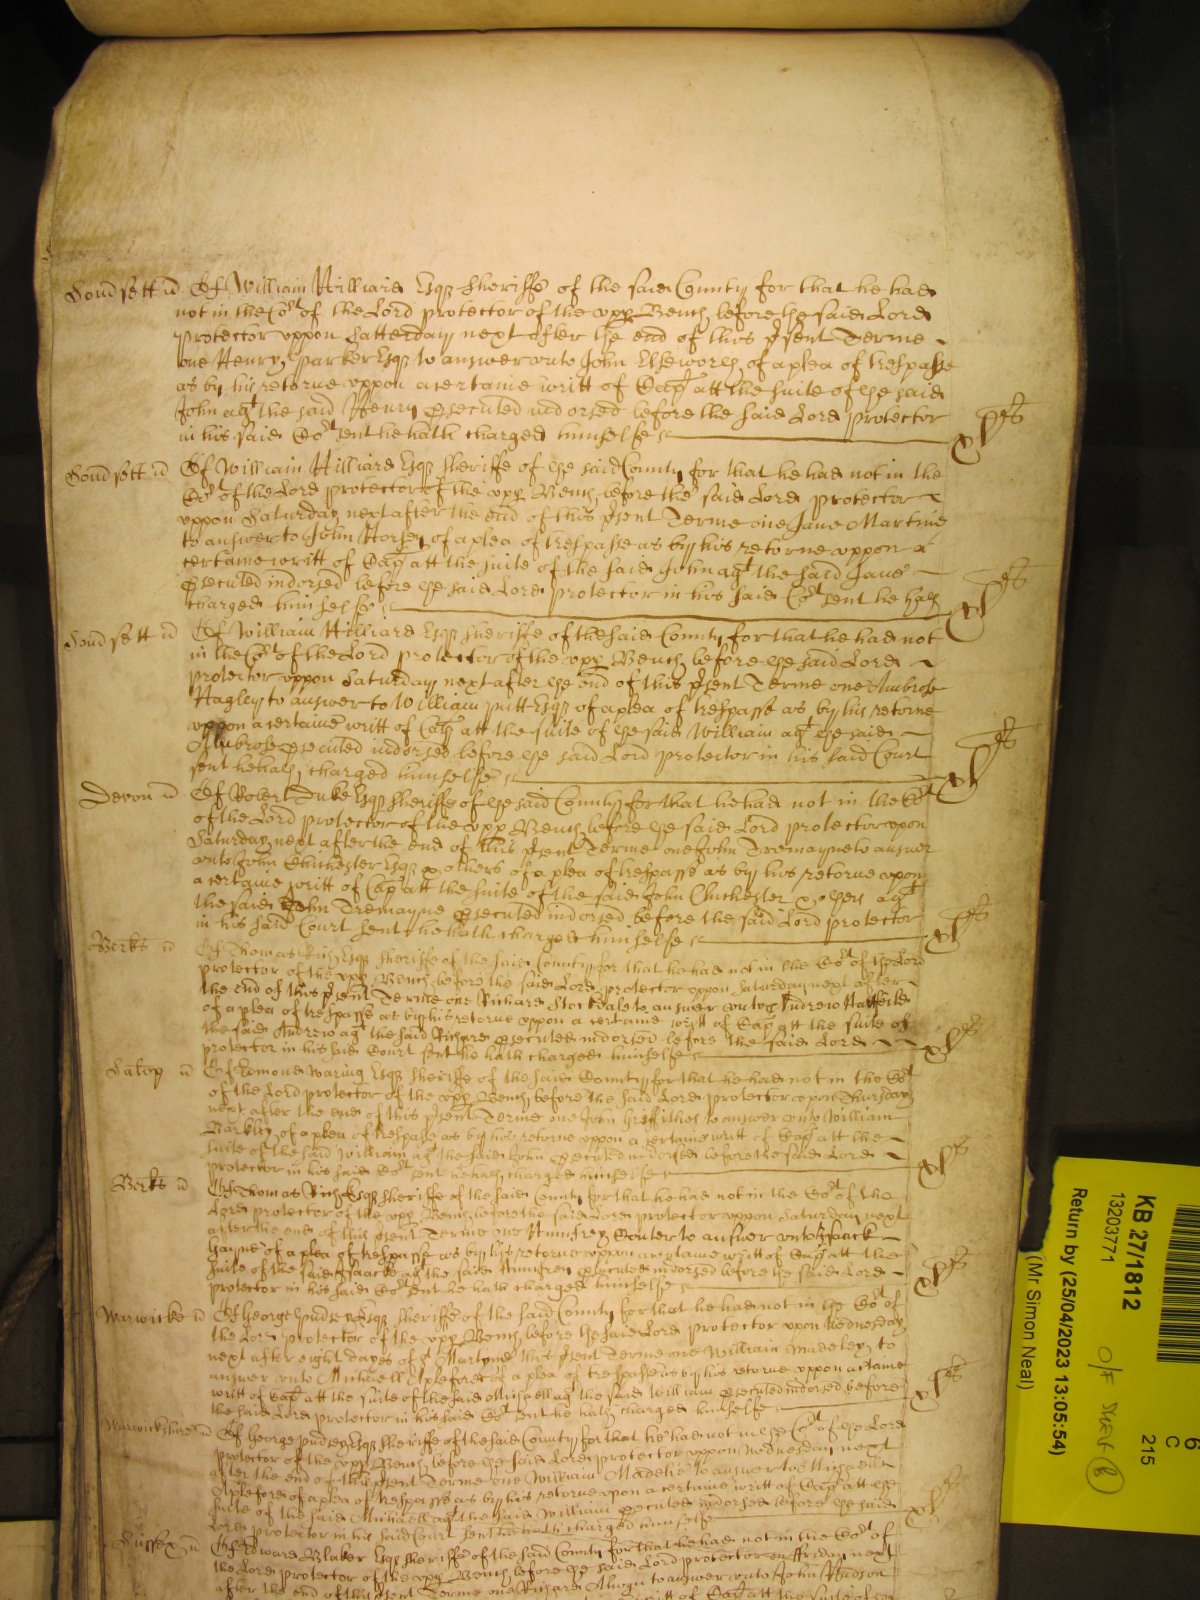 Dorsett ss Of William Hilliard Esqr Sheriffe of the said County for that he had
not in the Cort of the Lord protector of the upp Bench before the said Lord
Protector uppon Satterday next after the end of this psent Terme
one Henry Parker Esqr to answer unto John Elseworth of a plea of trespasse
as by his retorne uppon a certaine writt of Cap att the suite of the said
John agt the said Henry psecuted indorsed before the said Lord Protector
in his said Cort sent he hath charged himselfe
Dorsett ss Of William Hilliard Esqr Sheriffe of the said County for that he had not in the
Cort of the Lord protector of the upp Bench before the said Lord protector
uppon Saturday next after the end of this psent Terme one Jane Martine
to answer to John Horsey of a plea of trespasse as by his retorne uppon a
certaine writt of Cap att the suite of the said John agt the said Jane
psecuted indorsed before the said Lord protector in his said Cort sent he hath
charged himselfe
Dorsett ss Of William Hilliard Esqr Sheriffe of the said County for that he had not
in the Cort of the Lord protector of the upp Bench before the said Lord
protector uppon Saturday next after the end of this psent Terme one Ambrose
Hagley to answer to William Pitt Esqr of a plea of trespasse as by his retorne
uppon a certaine writt of Cap att the suite of the said William agt the said
Ambrose psecuted indorsed before the said Lord protector in his said Court
sent he hath charged himselfe
Devon ss Of Robert Duke Esqr Sheriffe of the said County for that he had not in the Cort
of the Lord protector of the upp Bench before the said Lord protector upon
Saturday next after the end of this psent Terme one John Tremayne to answer
unto John Chichester Esqr & others of a plea of trespasse as by his retorne upon
a certaine writt of Cap att the suite of the said John Chichester & others agt
the said John Tremayne psecuted indorsed before the said Lord protector
in his said Court sent he hath charged himselfe
Berks ss Of Thomas Rich Esqr Sheriffe of the said County for that he had not in the Cort of the Lord
protector of the upp Bench before the said Lord protector uppon Saturday next after
the end of this psent Terme one Richard Stockdale to answer unto Andrew
of a plea of trespasse as by his retorne uppon a certaine writt of Cap att the suite of
the said Andrew agt the said Richard psecuted indorsed before the said Lord
protector in his said Court sent he hath charged himselfe
Salop ss Of Edmond Waring Esqr Sheriffe of the said County for that he had not in the Cort
of the Lord protector of the upp Bench before the said Lord protector upon Thursday
next after the end of this psent Terme one John Griffithes to answer unto William
Barkley of a plea of trespasse as by his retorne uppon a certaine writt of Cap att the
suite of the said William agt the said John psecuted indorsed before the said Lord
protector in his said Cort sent he hath charged himselfe
Berks ss Of Thomas Rich Esqr Sheriffe of the said County for that he had not in the Cort of the
Lord protector of the upp Bench before the said Lord protector uppon Saturday next
after the end of this psent Terme one Humfrey to answer unto Isaack
of a plea of trespasse as by his retorne uppon a certaine writt of Cap att the
suite of the said Isaack agt the said Humfrey psecuted indorsed before the said Lord
protector in his said Cort sent he hath charged himselfe
Warwicke ss Of George Pudsey Esqr Sheriffe of the said County for that he had not in the Cort of
the Lord protector of the upp Bench before the said Lord protector upon Wednesday
next after eight dayes of St Martyne this psent Terme one William Madeley to
answer unto Michaell Apleford of a plea of trespasse as by his retorne uppon a certaine
writt of Cap att the suite of the said Michaell agt the said William psecuted indorsed before
the said Lord protector in his said Cort sent he hath charged himselfe
Warwickshire ss Of George Pudsey Esqr Sheriffe of the said County for that he had not in the Cort of the Lord
protector of the upp Bench before the said Lord protector uppon Wednesday next
after the end of this psent Terme one William Madelie to answer to Michaell
Apleford of a plea of trespasse as by his retorne uppon a certaine writt of Cap att the
suite of the said Michaell agt the said William psecuted indorsed before the said
Lord protector in his said Court sent he hath charged himselfe
Sussex ss Of Edward Blaker Esqr Sheriffe of the said County for that he had not in the Cort of
the Lord protector of the upp Bench before the said Lord protector on Friday next
after the end of this psent Terme one Richard to answer unto John Hudson
writt of Cap att the suite of the
KB 27/1812
13203771
Return by (25/04/2023 13:05:54)
(Mr Simon Neal)
6
C
215
O/F